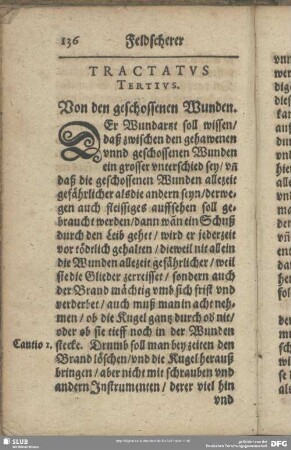 136 Feldscherer
TRACTATVS
TERTIVS.
Von den geschossenen Wunden.
DEr Wundartzt soll wissen/
daß zwischen den gehawenen
vnnd geschossenen Wunden
ein grosser vnterschied sey/ vñ
daß die geschossenen Wunden allezeit
gefährlicher als die andern seyn/derwe-
gen auch fleissiges auffsehen soll ge-
braucht werden/dann wañ ein Schuß
durch den Leib gehet/ wird er jederzeit
vor tödtlich gehalten / dieweil nit allein
die Wunden allezeit gefährlicher/ weil
sie die Glieder zerreisset / sondern auch
der Brand mächtig vmb sich frist vnd
verderbet/ auch muß man in acht neh-
men / ob die Kugel gantz durch oð nit/
oder ob sie tieff noch in der Wunden
Cautio 1. stecke. Drumb soll man bey zeiten den
Brand löschen/vnd die Kugel herauß
bringen / aber nicht mit schrauben vnd
andern Instrumenten / derer viel hin
vnd
SLUB
DFG